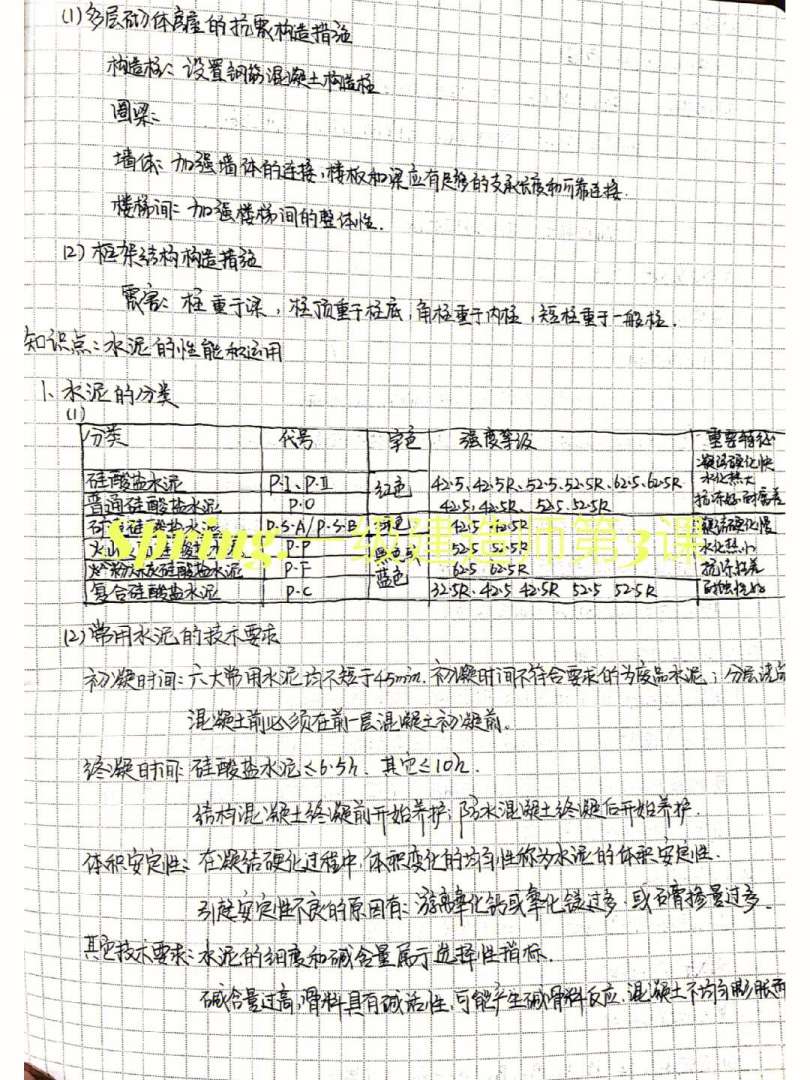 (1) 多层砌体房屋的抗震构造措施
构造柱: 设置钢筋混凝土构造柱
圈梁:
墙体: 加强墙体的连接,楼板和梁应有足够的支承长度和可靠连接.
楼梯间: 加强楼梯间的整体性.
(2) 框架结构构造措施
震害: 柱重于梁,柱顶重于柱底,角柱重于内柱,短柱重于一般柱.
知识点:水泥的性能和运用
1、水泥的分类
(1)
分类 代号 字色 强度等级 重要特征
硅酸盐水泥 P·I、P·II 红色 42.5、42.5R、52.5、52.5R、62.5、62.5R 凝结硬化快
水化热大
普通硅酸盐水泥 P·O 42.5、42.5R、52.5、52.5R 抗冻好、耐腐差
硅酸盐水泥 P·S·A/P·S·B 42.5 凝结硬化慢
P·P 黑色或 52.5 52.5R 水化热小
硅酸盐水泥 P·F 蓝色 62.5 62.5R 抗冻性差
复合硅酸盐水泥 P·C 32.5R、42.5 42.5R 52.5 52.5R
Spring.一级建造师第3课
(2)常用水泥的技术要求
初凝时间: 六大常用水泥均不短于45min.初凝时间不符合要求的为废品水泥;分层浇
混凝土前必须在前一层混凝土初凝前.
终凝时间: 硅酸盐水泥≤6.5h、其它≤10h.
结构混凝土终凝前开始养护;防水混凝土终凝后开始养护.
体积安定性: 在凝结硬化过程中,体积变化的均匀性称为水泥的体积安定性.
引起安定性不良的原因有:游离氧化钙或氧化镁过多.或石膏掺量过多.
其它技术要求:水泥的细度和碱含量属于选择性指标.
碱含量过高,骨料具有碱活性,可能产生碱骨料反应.混凝土不均匀膨胀而